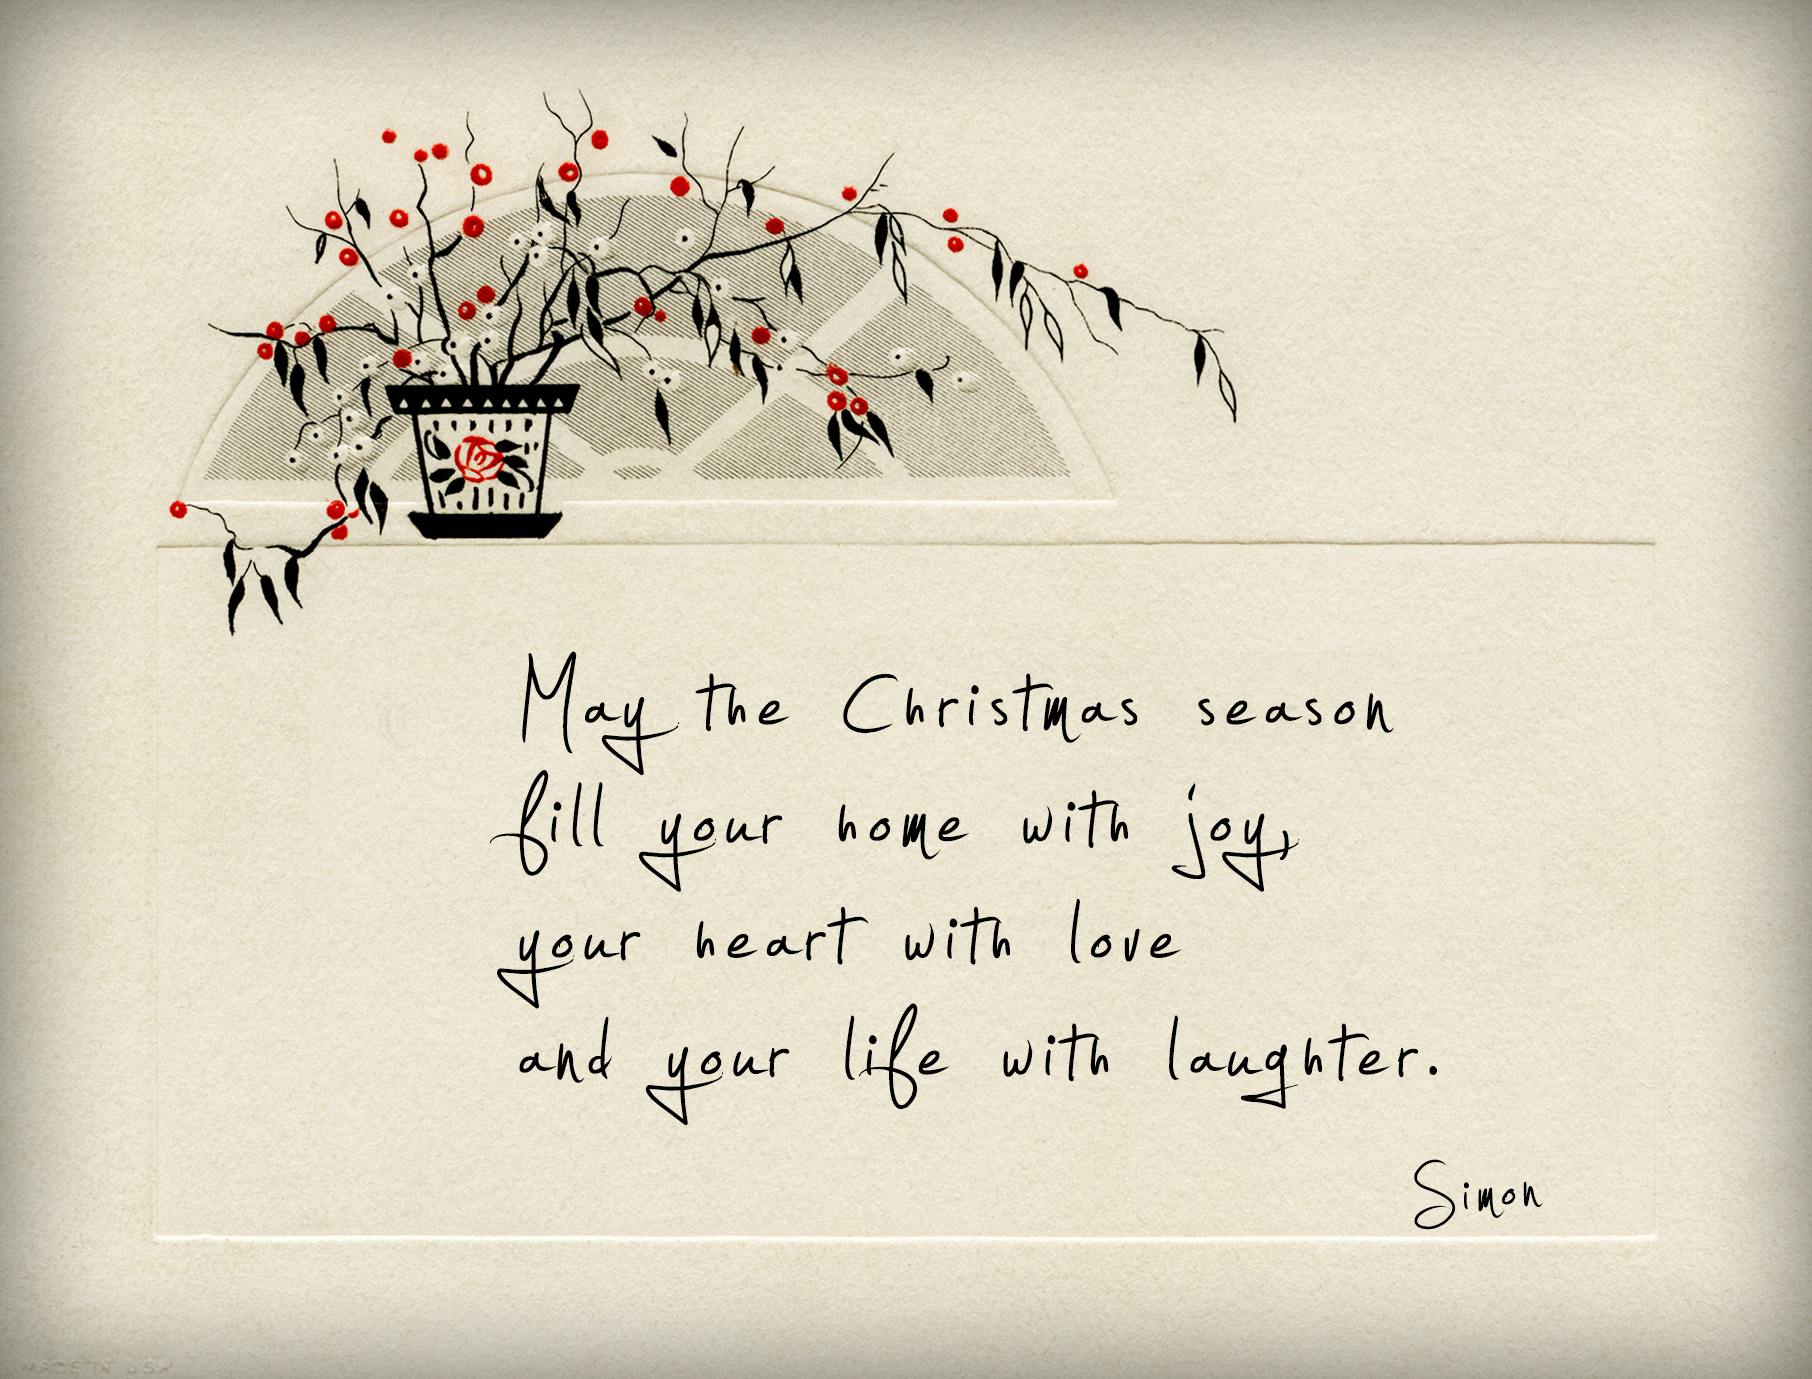 May the Christmas season
fill your home with joy,
your heart with love
and your life with laughter.
Simon
MADE IN USA